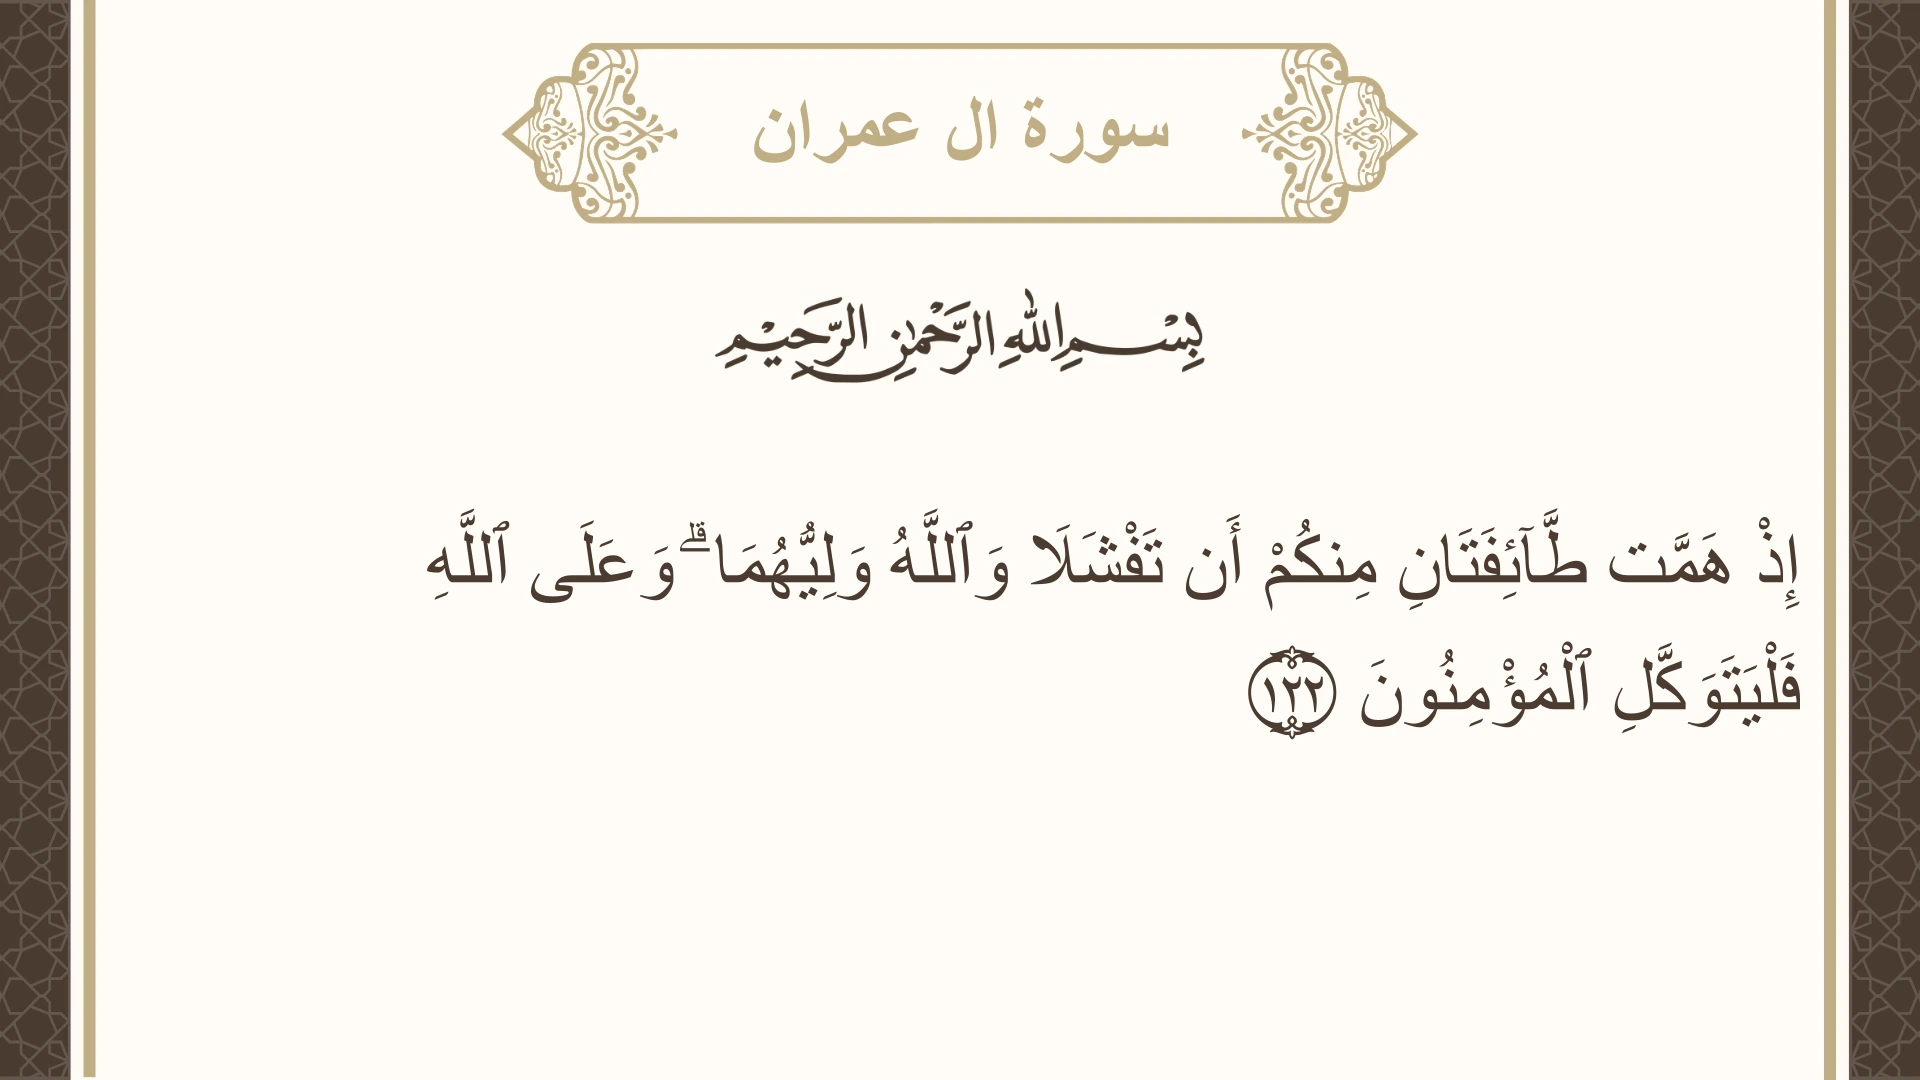 سورة ال عمران
بِسْمِ اللهِ الرَّحْمٰنِ الرَّحِيْمِ
إِذْ هَمَّت طَّآئِفَتَانِ مِنكُمْ أَن تَفْشَلَا وَٱللَّهُ وَلِيُّهُمَا ۗ وَعَلَى ٱللَّهِ
فَلْيَتَوَكَّلِ ٱلْمُؤْمِنُونَ ١٢٢